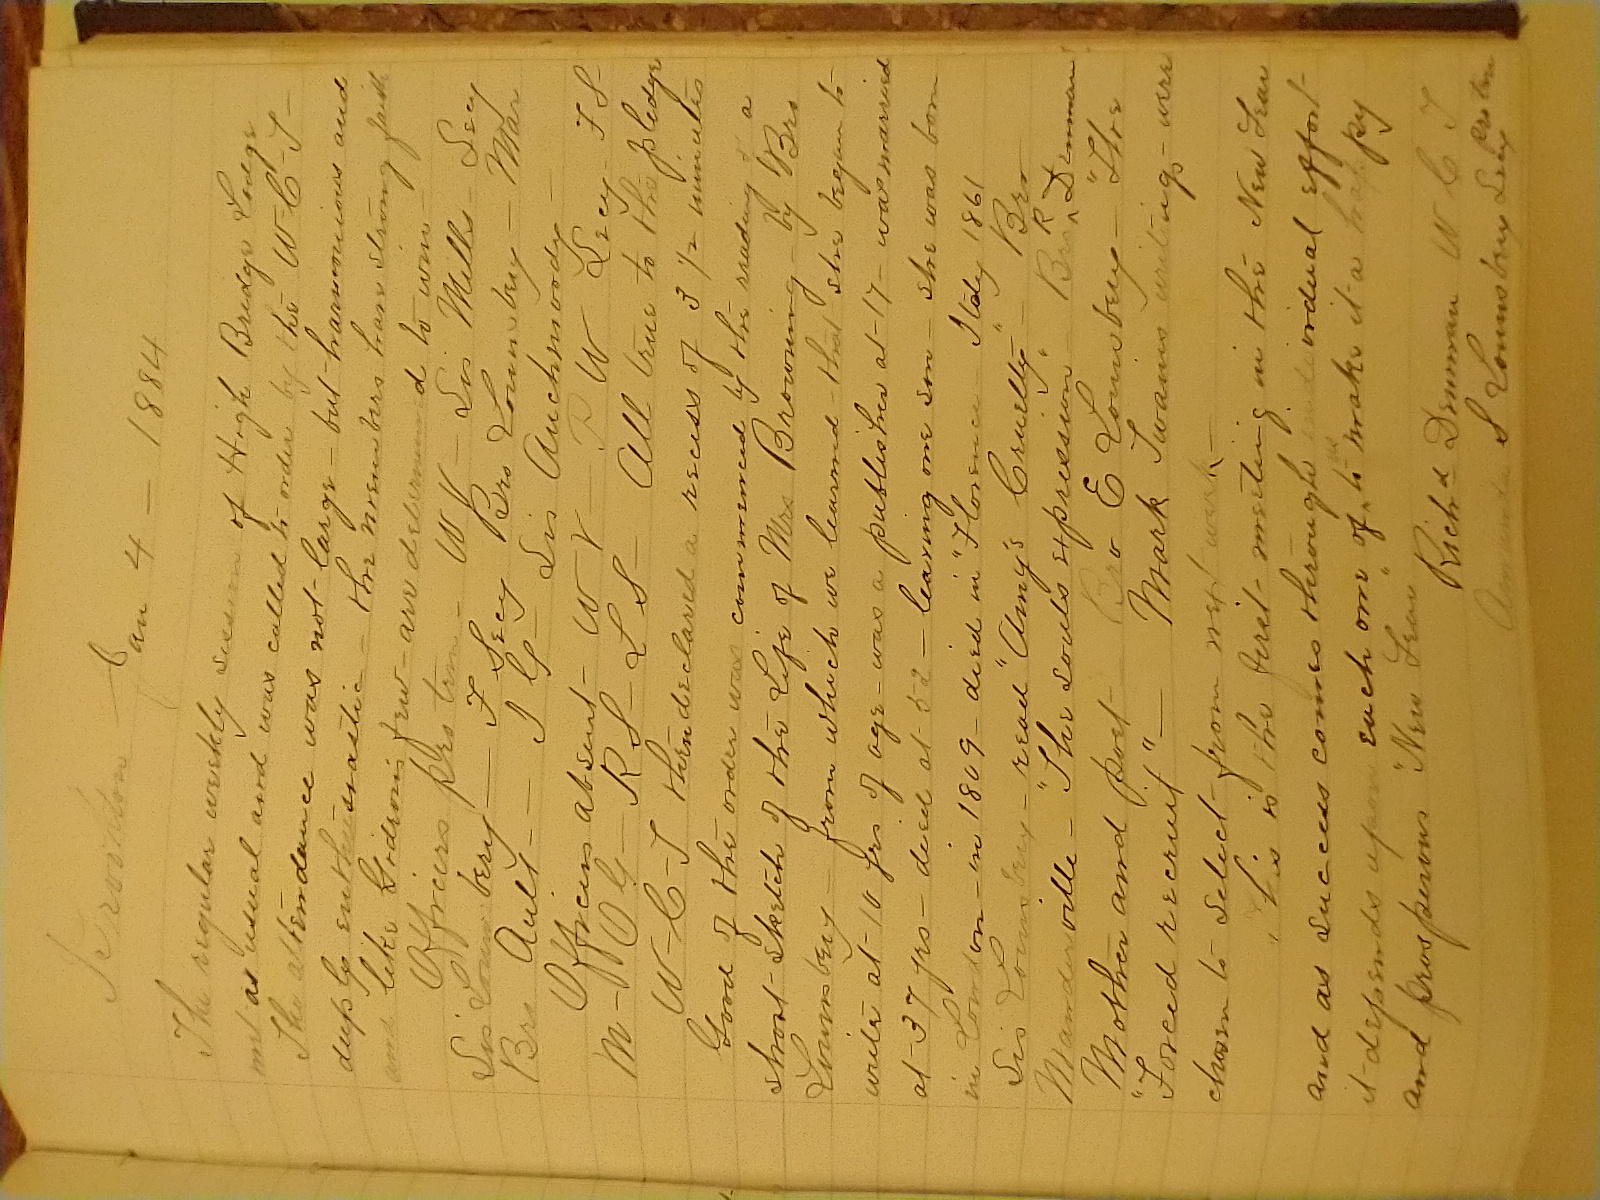 Brooklon Jan 4 — 1884
The regular weekly session of High Bridge Lodge
met as usual and was called to order by the W-C-T-
The attendance was not large - but harmonious and
deeply enthusiastic - the members have strong faith
and like Gideons few - are determined to win -
Officers pro tem - W V - Sis Mills - Secy
Sis Lounsbery - F Secy Bro Lounsbery - Mar
Bro Ault - I G - Sis Auchmoody -
Officers absent - W V - P W Secy - F S -
M - O G - R S - L S - All true to the pledge
W-C-T then declared a recess of 3 1/2 minutes
Good of the order was commenced by the reading of a
short sketch of the Life of Mrs Browning - by Bro
Lounsbery - from which we learned that she began to
write at 10 yrs of age - was a publisher at 17 - was married
at 37 yrs - died at 52 - leaving one son - she was born
in London - in 1809 - died in "Florence Italy 1861
Sis Lounsbery - read "Amy's Cruelty" - Bro
Manderville - "The souls expression" - Bro R Denman
Mother and poet - Bro E Lounsbery - "The
"Forced recruit" - Mark Twains writings - were
chosen to select from next week -
This is the first meeting in the New Year
and as success comes through individual effort
it depends upon each one of us to make it a happy
and prosperous "New Year"
Richd Denman W C T
Amanda S Lounsbery Secy pro tem